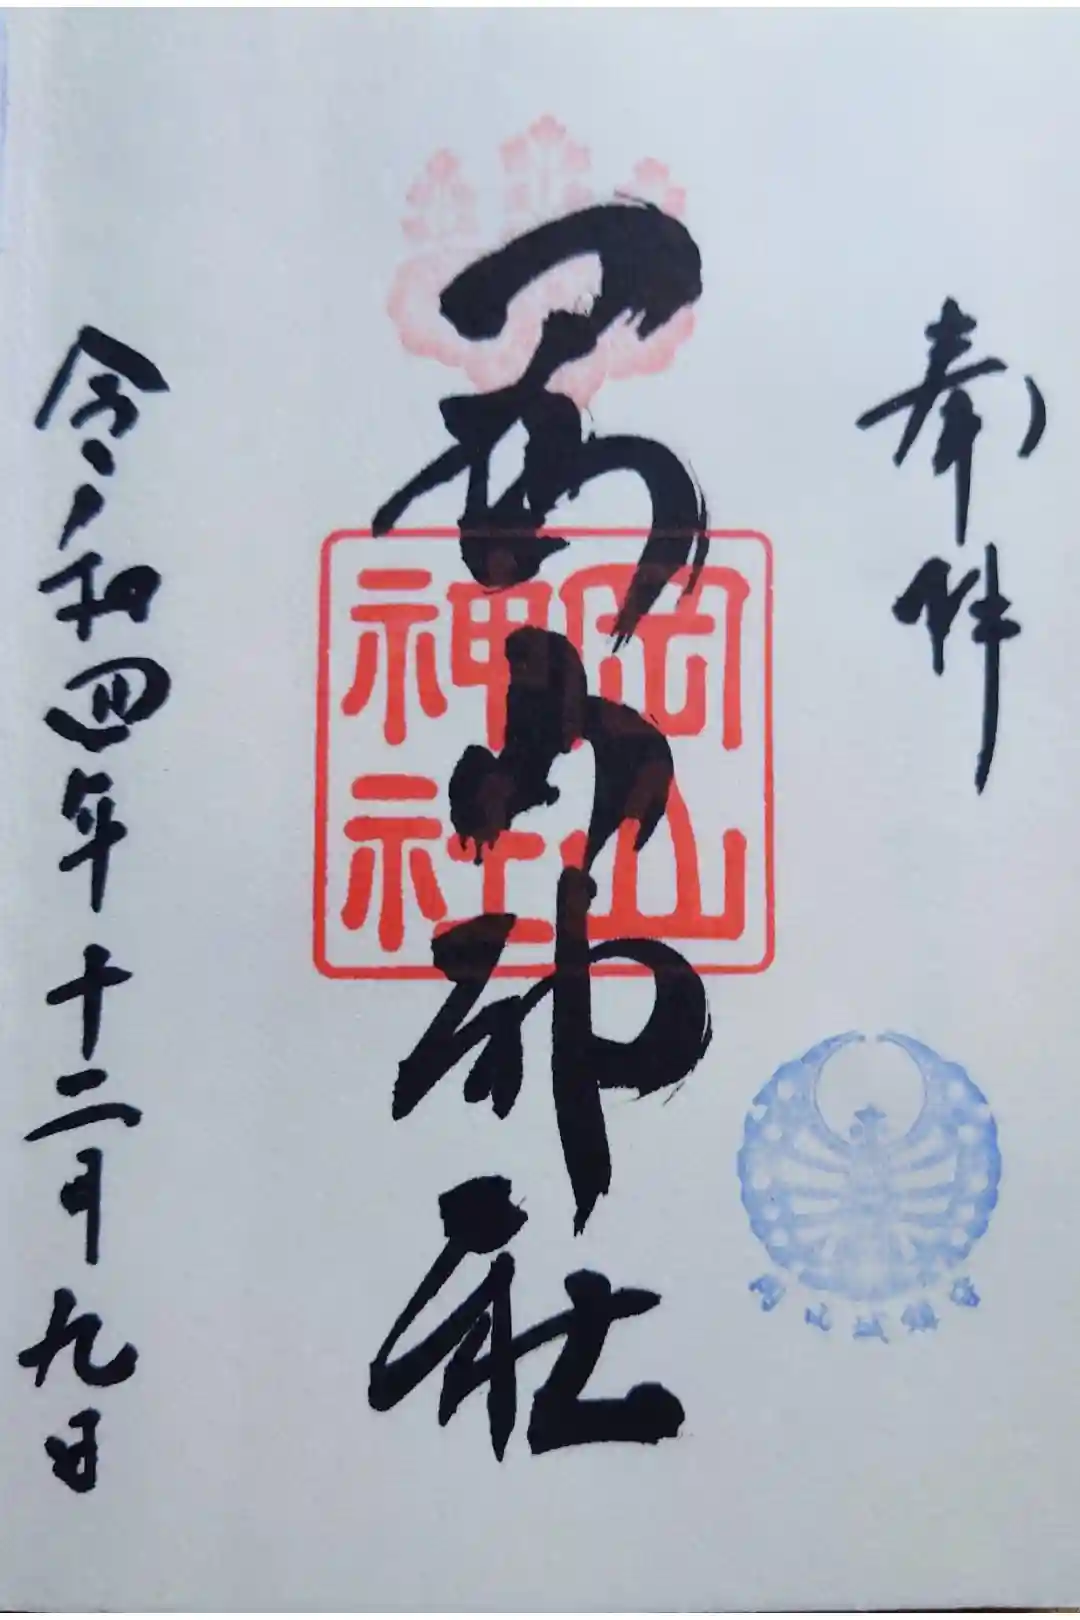 奉拝
岡山神社
岡山
神社
城鎮
令和四年十二月九日